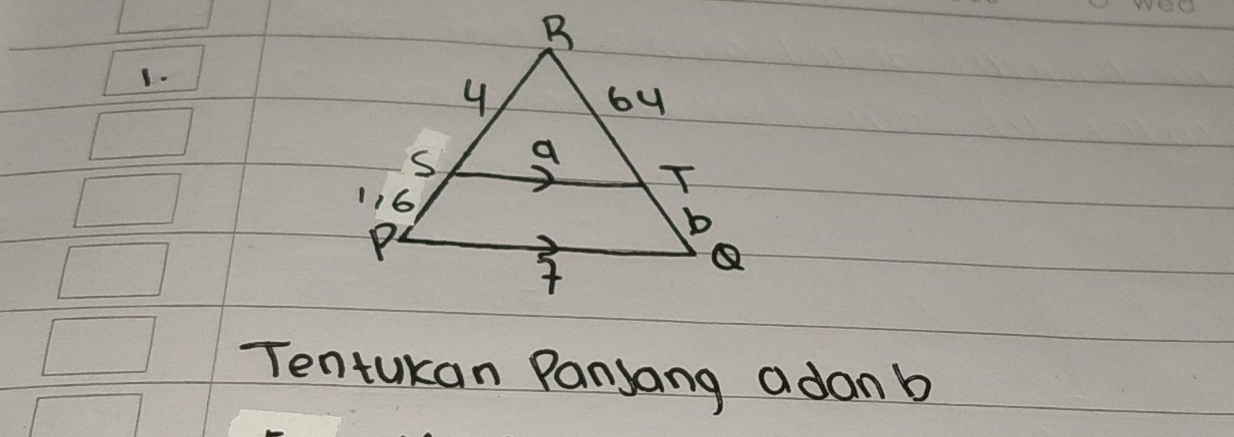 Wed
1.
R
4
64
S
a
T
1,6
b
P
Q
7
Tentukan Panjang a dan b